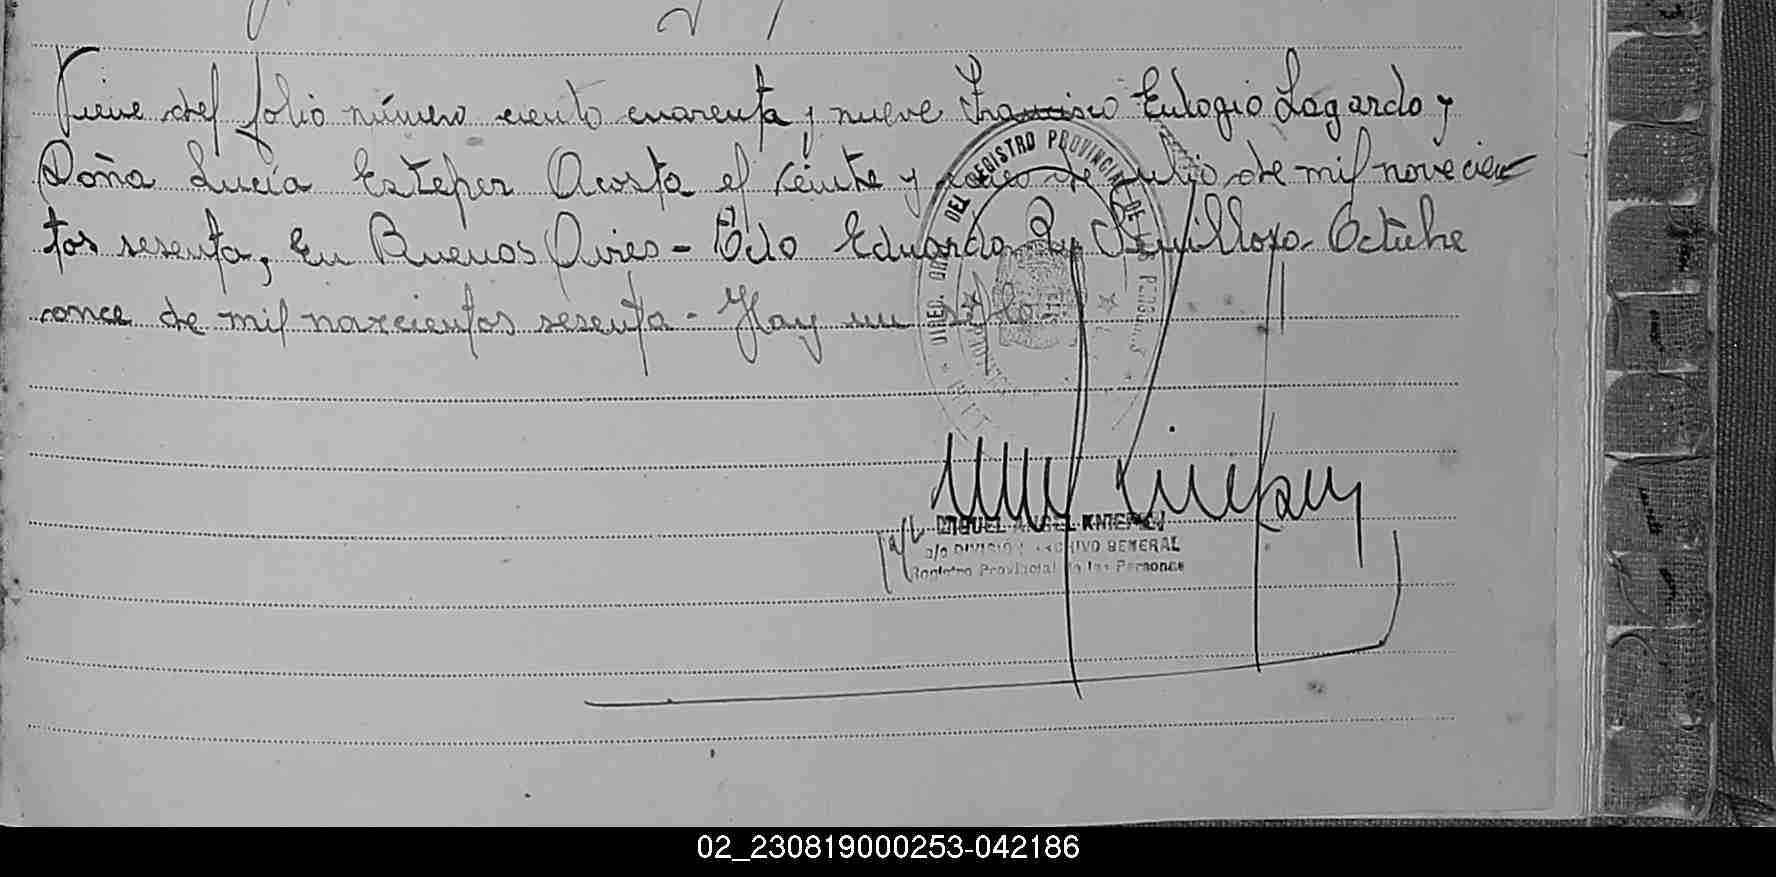 Viene del folio número ciento cuarenta y nueve Francisco Eulogio Lagardo y
Doña Lucía Estefer Acosta el veinte y cinco de Julio de mil novecien
tos sesenta, En Buenos Aires - Fdo Eduardo Octubre
once de mil novecientos sesenta - Hay un sello
DEL REGISTRO PROVINCIAL DE LAS PERSONAS
MIGUEL ANGEL
a/c DIVISIÓN ARCHIVO GENERAL
Registro Provincial de las Personas
02_230819000253-042186